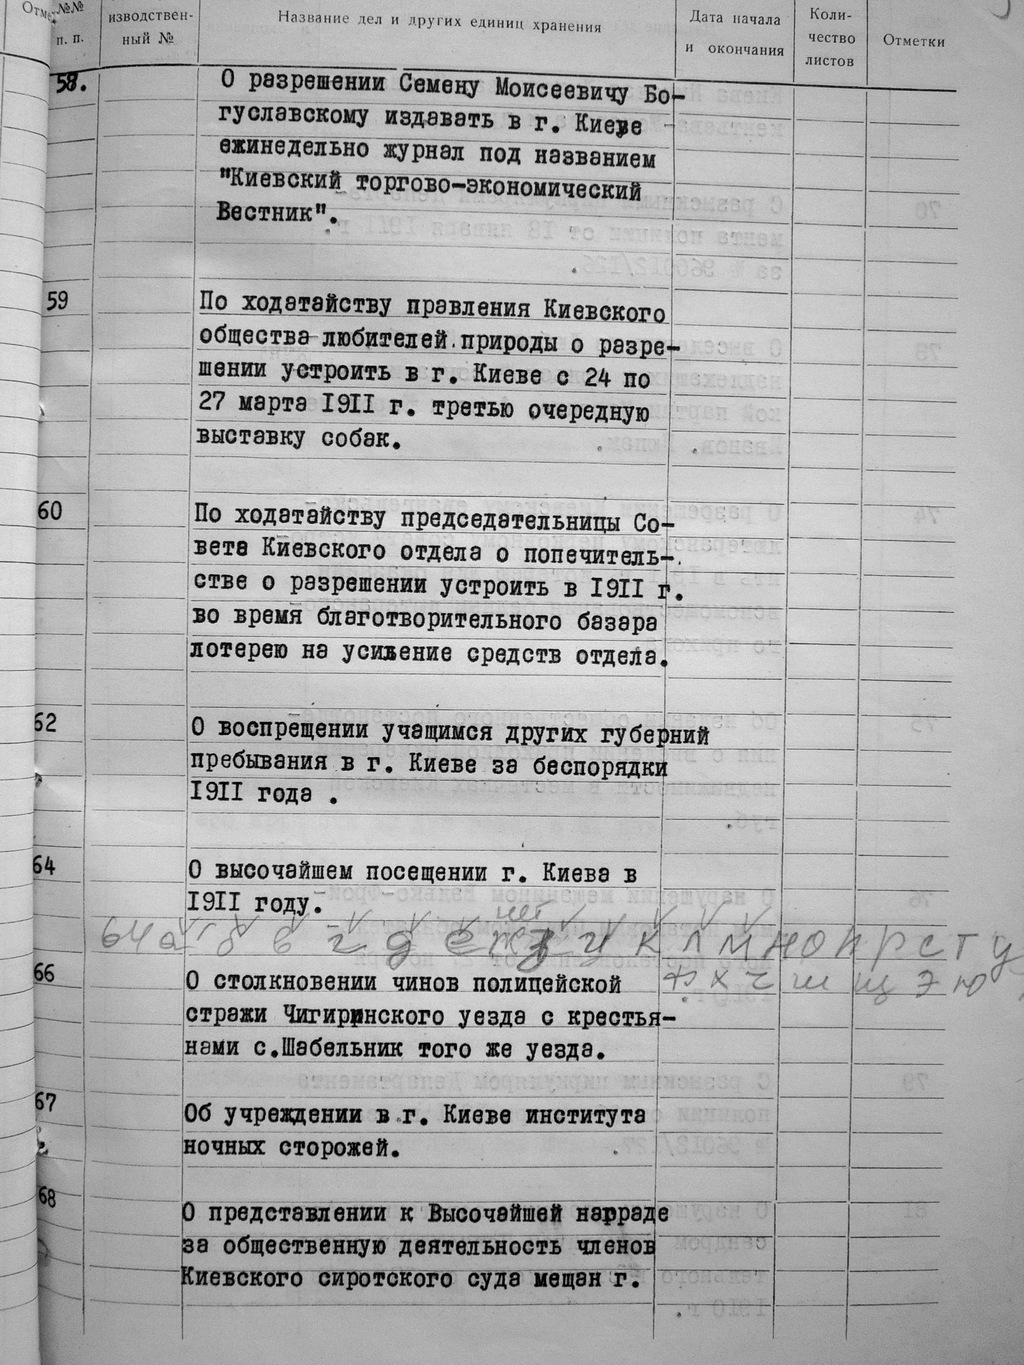 №№ п. п.
изводствен-
ный №
Название дел и других единиц хранения
Дата начала
и окончания
Коли-
чество
листов
Отметки
58.
О разрешении Семену Моисеевичу Бо-
гуславскому издавать в г. Киеве
еженедельно журнал под названием
"Киевский торгово-экономический
Вестник".
59
По ходатайству правления Киевского
общества любителей природы о разре-
шении устроить в г. Киеве с 24 по
27 марта 1911 г. третью очередную
выставку собак.
60
По ходатайству председательницы Со-
вета Киевского отдела о попечитель-
стве о разрешении устроить в 1911 г.
во время благотворительного базара
лотерею на усиление средств отдела.
62
О воспрещении учащимся других губерний
пребывания в г. Киеве за беспорядки
1911 года .
64
О высочайшем посещении г. Киева в
1911 году.
нет
64а б в г д е ж з и к л м н о п р с т у
ф х ч ш щ э ю
66
О столкновении чинов полицейской
стражи Чигиринского уезда с крестья-
нами с.Шабельник того же уезда.
67
Об учреждении в г. Киеве института
ночных сторожей.
68
О представлении к Высочайшей награде
за общественную деятельность членов
Киевского сиротского суда мещан г.